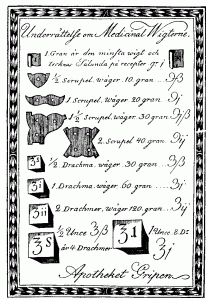 Underrättelse om Medicinal Wigterne.
1 Gran är den minsta wigt och
tecknas Sålunda på recepter gr. j
½ Scrupel. wäger 10 gran ... ℈ß
1 Scrupel. wäger 20 gran ... ℈j
1½ Scrupel. wäger 30 gran ℈jß
2 Scrupel 40 gran ... ℈ij
ʒß ½ Drachma. wäger 30 gran ... ʒß
ʒi 1 Drachma. wäger 60 gran ... ʒj
ʒii 2 Drachmer, wäger 120 gran ... ʒij
℥s ½ Unce ℥ß
är 4 Drachmer
℥1 1 Unce. 8. Dr.
℥j
Apotheket Gripen